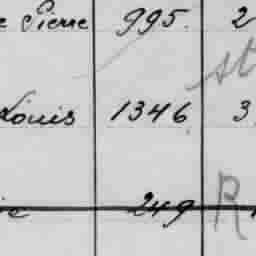 e Pierre 995. 2
st
Louis 1346 3
ie 249
R